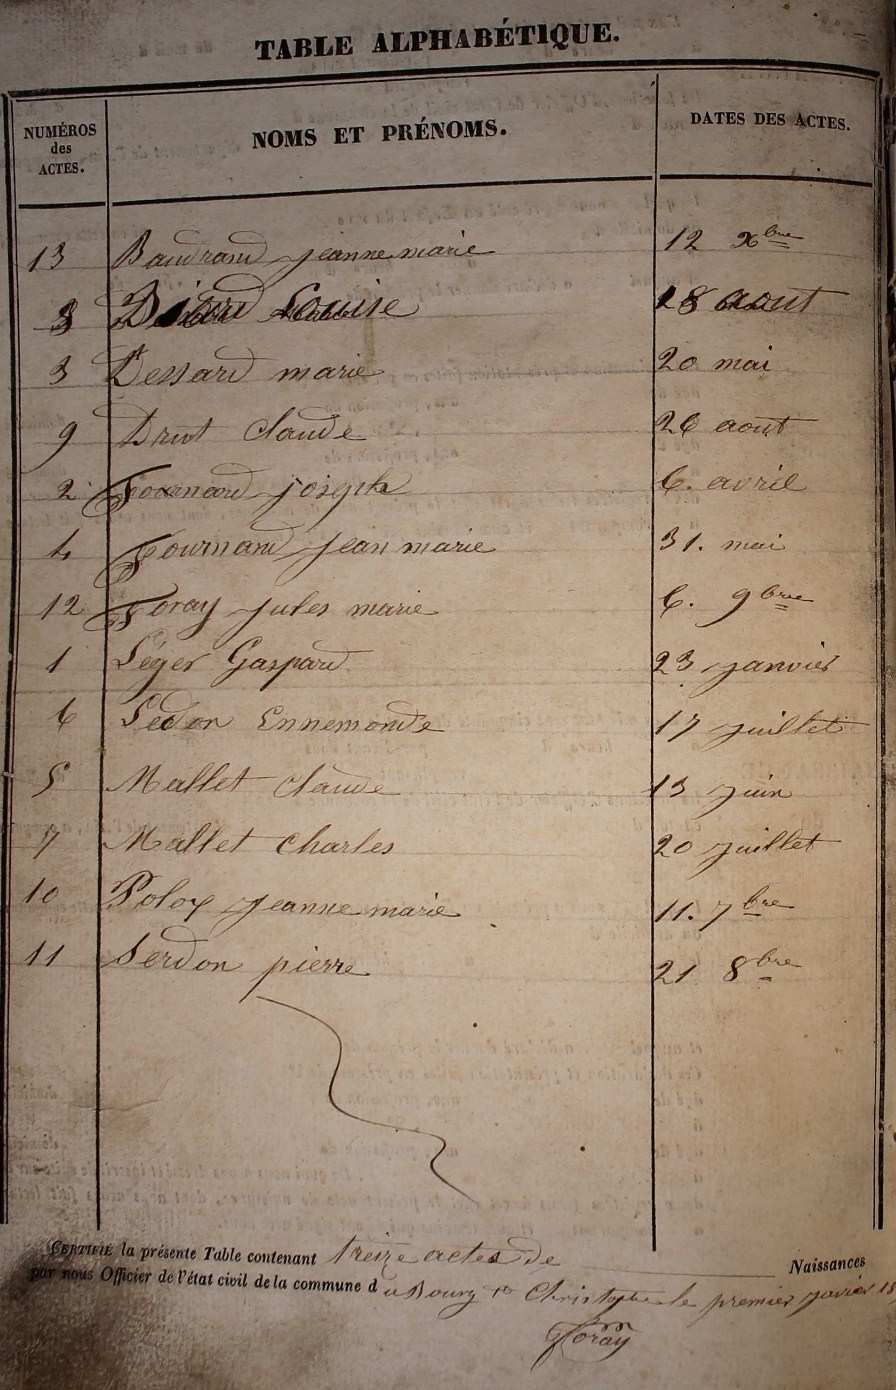 TABLE ALPHABÉTIQUE.
NUMÉROS des ACTES. NOMS ET PRÉNOMS. DATES DES ACTES.
13 Baudrand jeanne marie 12 xbre
8 Louise 18 aout
3 Dessard marie 20 mai
9 Drut claude 26 aout
2 Fournand joseph 6. avril
4 Fournand jean marie 31. mai
12 Foray jules marie 6. 9bre
1 Léger Gaspard 23 janvier
6 Ledon Ennemonde 17 juillet
5 Mallet claude 13 juin
7 Mallet charles 20 juillet
10 Poloy jeanne marie 11. 7bre
11 Serdon pierre 21 8bre
CERTIFIÉ la présente Table contenant treize actes de Naissances
par nous Officier de l'état civil de la commune d u Bourg st Christophe le premier janvier 18
Foray